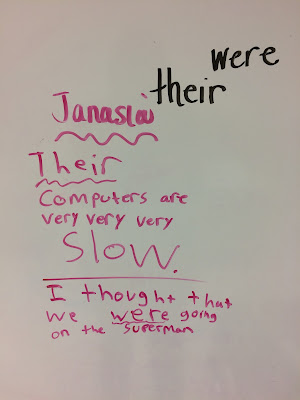 were
their
Janaslai
Their
Computers are
very very very
Slow.
I thought that
we were going
on the superman